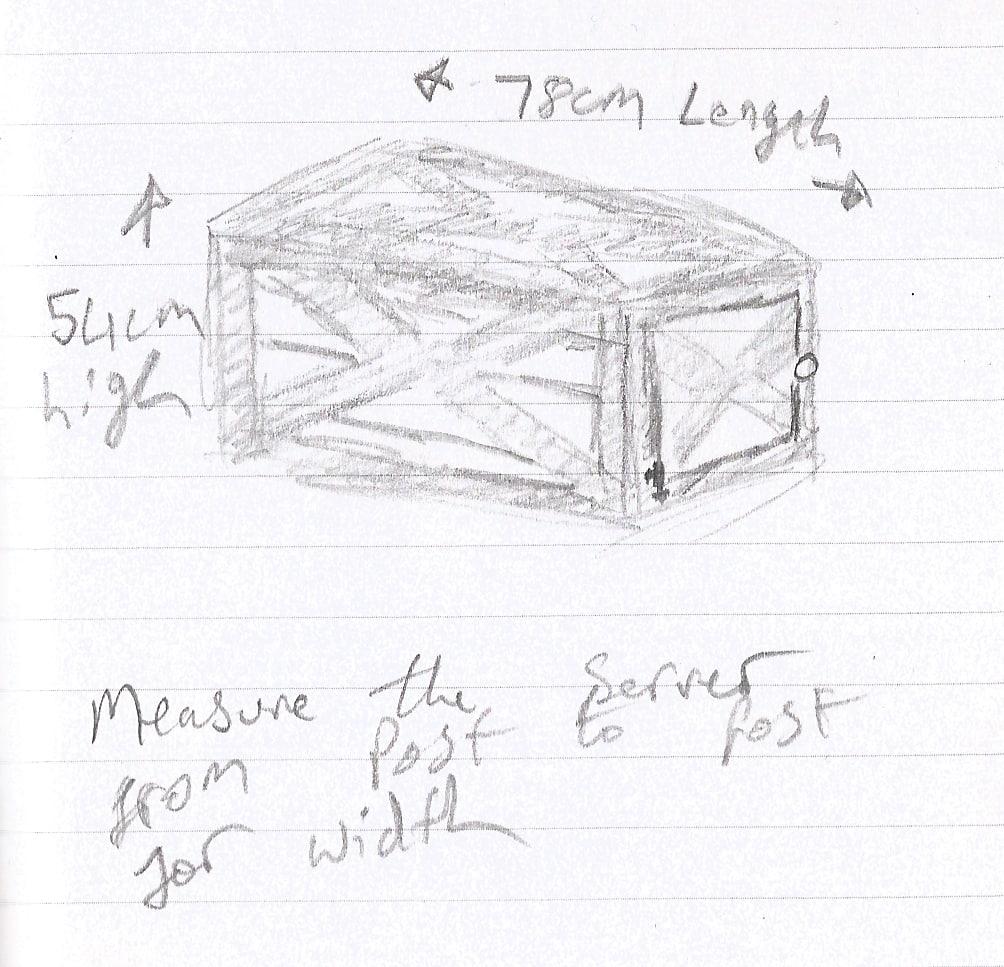 78cm Length
54cm
high
Measure the Server
from Post to Post
for width